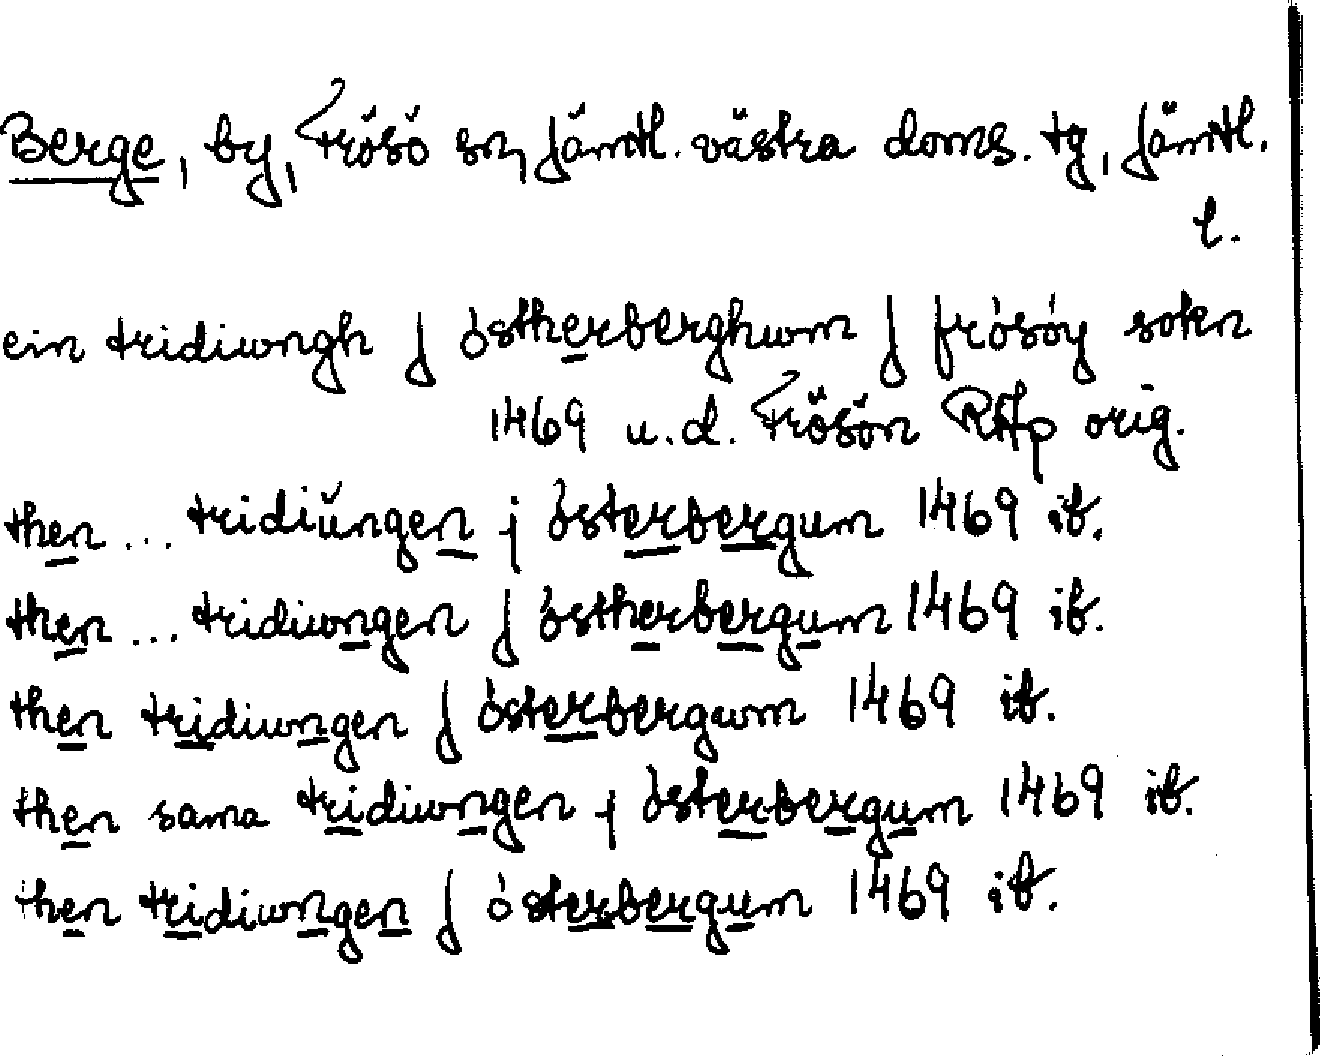 Berge, by, Frösö sn, Jämtl. västra doms. tg, Jämtl.
l.
ein tridiwngh J óstherberghwm J frósóy sokn
1469 u.d. Frösön RAp orig.
then ... tridiŭngen j ósterbergum 1469 ib.
then ... tridiwngen J óstherbergum 1469 ib.
then tridiwngen J ósterbergwm 1469 ib.
then sama tridiwngen j ósterbergum 1469 ib.
then tridiwngen J ósterbergum 1469 ib.